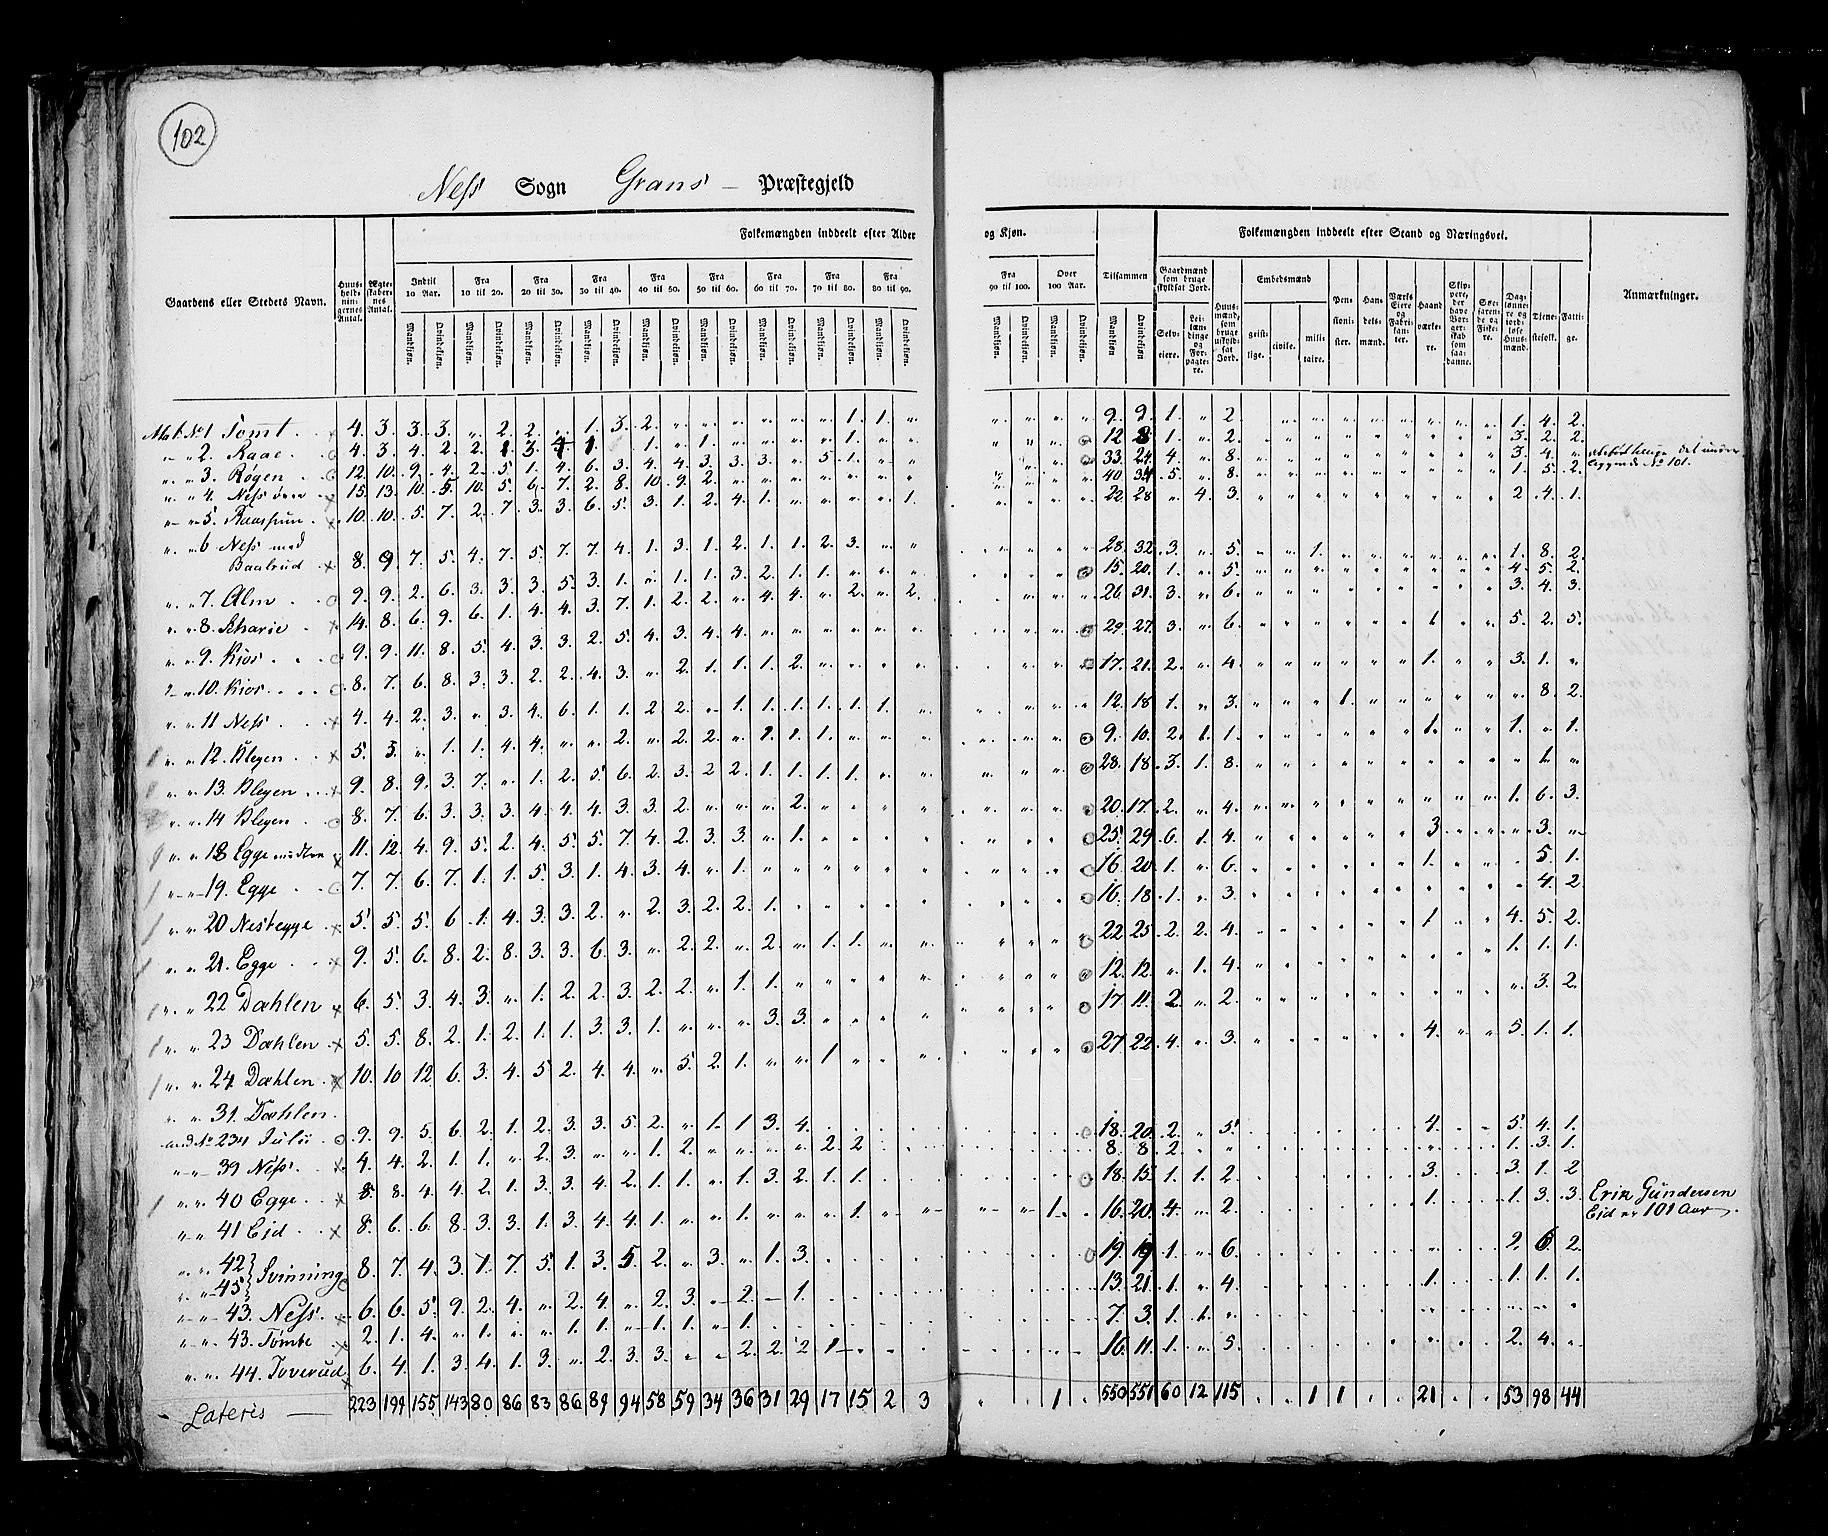 102
Ness Sogn Grans – Præstegjeld
Folkemængden inddeelt efter Alder og Kjøn.
Folkemængden inddeelt efter Stand og Næringsvei.
Gaardens eller Stedets Navn.
Huusholdningernes Antal.
Ægteskabernes Antal.
Indtil 10 Aar.
Fra 10 til 20.
Fra 20 til 30.
Fra 30 til 40.
Fra 40 til 50.
Fra 50 til 60.
Fra 60 til 70.
Fra 70 til 80.
Fra 80 til 90.
Fra 90 til 100.
Over 100 Aar.
Tilsammen
Mandkjøn. Qvindekjøn.
Gaardmænd som bruge skyldsat Jord.
Selveiere.
Leilændinge og Forpagtere.
Huusmænd, som bruge uskyldsat Jord.
Embedsmænd
geistlige. civile. militaire.
Pensionister.
Handelsmænd.
Værks Eiere og Fabrikanter.
Haandværkere.
Skippere, der have Borgerskab som saadanne.
Søefarende og Fiskere.
Daglønnere og jordløse Huusmænd.
Tjenestefolk.
Fattige.
Anmærkninger.
Mat. No 1 Tomt 4. 3. 3. 3. „ 2. 2. „ 1. 3. 2. „ „ „ „ „ „ 1. 1. „ „ „ „ „ 9. 9. 1. „ 2 1. 4. 2.
„ 2. Raae 12 8 1. „ 2. 3. 2. 2.
„ 3. Røgen 12 10. 9. 4. 2. 5. 1. 4. 6. 3. 4. 4. 3. 3. 3. „ 5. 1. 33. 24. 4. „ 8. 3. 4. „
„ 4. Ness 15. 13. 10. 5. 10. 5. 6. 7. 2. 8. 10. 9. 2. 40 34 5. „ 8. 1. 5. 2.
No 101.
„ 5. 10. 10. 5. 7. 2. 7. 3. 3. 6. 5. 3. 1. 2. 4. 1. „ „ „ „ 1. 22. 28 „ 4. 3. 2. 4. 1.
„ 6 Ness med
Baalrud 8. 9. 7. 5. 4. 7. 5. 7. 7. 4. 1. 3. 1. 2. 1. 1. 2. 3. „ „ 28. 32. 3. „ 5. „ „ 1. 1. 8. 2.
„ 7. Alm 9. 9. 2. 6. 3. 3. 3. 5. 3. 1. „ 1. 1. 3. 2. 1. 1. „ „ „ 15. 20. 1. „ 5. 4. 5. 2.
„ 8. Scharie 14. 8. 6. 9. 6. 1. 4. 4. 3. 7. 1. 2. 2. „ 4. 4. „ 2. „ 2. 26 31. 3. „ 6. 3. 4. 3.
„ 9. Kjos 9. 9. 11. 8. 5. 4. 3. 3. 2. 5. 4. 3. 4. 4. 29. 27. 3. „ 6. 1 5. 2. 5.
„ 10. Kios 8. 7. 6. 8. 3. 3. 2. 2. 4. 3. „ 2. 1. 1. 1. 2. 17. 21. 2. „ 4. 1. 3. 1. „
„ 11 Ness 4. 4. 2. 3. „ 3. 4. 6. 1. 1. 2 2. „ 1. 1. 1. 1. 1. 1. 12. 18 1. „ 3. 1. „ 8. 2.
„ 12. Blegen 5. 3. „ 1. 1. 4. 4. „ „ 2. „ 2. 2. „ 9. 10. 2. 1. 1. 1. 1. „ 1.
„ 13. Blegen 9. 8. 9. 3. 7. „ 1. 2. 5. 6. 2. 3. 2 2. 1. 1. 1. 1. 28. 18. 3. 1. 8. 1. „
„ 14 Blegen 8. 7. 6. 3. 3. 3. 4. 4. 4. 3 3. 2. „ „ „ 2. 20. 17. 2. „ 4. 1. 6. 3.
„ 18 Egge 11. 12. 4. 9. 5. 2. 4. 5. 5. 7. 4. 2. 3. 3. „ 1. 25. 29. 6. 1. 4. 3. 3. „
„ 19. Egge 7. 7. 6. 7. 1. 1. 5. 3. 1. 4. 3. 4. „ 1. 16. 20. 1. „ 6. 1. 5. 1.
„ 20 Nestegge 5. 5. 5. 6. 1. 4. 3. 3. 2. „ 2. 3. 2. 2. 1. 16. 18. 1. „ 3. 4. 2.
„ 21. Egge 9. 5. 6. 8. 2. 8. 3. 3. 6. 3. „ 2. 2. „ 2. „ 1. 1. 22. 25. 2. 2. 4. 1. 4. 5. 2.
„ 22 Dæhlen 6. 5. 3. 4. 3. „ 1. 2. 2. 3. 2. 2. „ 1. 1. 12. 12. „ 1. 4. 1. 1. 1.
„ 23 Dæhlen 5. 5. 8. 2. 1. 2. 1. 1. 3. 3. 1. „ „ „ 3. 3. 17 11. 2. „ 2. 3. 2.
„ 24 Dæhlen 10. 10 12. 6. 3. 4. 5. 2. 4. 4. „ 5. 2. 1. „ „ 1 27 22. 4. „ 3. 4. 5. 1. 1.
„ 31 Dæhlen.
No 234 9. 9. 5. 6. 2. 1. 2. 3. 3. 5. 2. „ 1. 1 3. 4. 18. 20. 2. „ 5. 4. 5. 4. 1.
„ 39 Ness 4. 4. 2. 1. 1. „ 2. 3. „ „ 1. 2. „ „ „ „ 2 2 8. 8. 2. 1. 3. 1.
„ 40 Egge 8. 8. 4. 4. 2. 1. 3. 3. 4. 2. 1. 1. „ 1. 3. 2. 1. 1. 18. 15. 1. 1. 2. 3. 3. 1. 2
„ 41 Eid 8. 6. 6. 8. 3. 3. 1. 3. 4. 4. 1. „ „ 1. „ „ „ 1. 1. 16. 20. 4. „ 2. 1. 1. 3. 3.
Erik Gundersen
Eid er 101 Aar.
„ 42
„ 45 } Svinning 8. 7. 4. 3. 1. 7. 5. 1. 3. 5 2. „ 3. „ 1. 3. 19. 19. 1. „ 6. 2. 6. 2.
„ 43. Ness. 6. 6. 5. 9. 2. 4. „ 2. 4. „ 2. 3. „ 2. – 1. 13. 21. 1. „ 4. 1. 1. 1. 1.
„ 43. Tømte 2. 1. 4. „ 1. „ „ 1. 1. „ 1. 1. „ 1. 7. 3. 1. 1. „
„ 44. Toverud 6. 4. 1. 3. 4. 1. 3. „ 2. 3. 3. „ „ 2. 2. 2 1 16. 11. 1. „ 5. 2. 4. „
Lateris 223 199 155 143 80 86 83 86 89 94 58 59 34 36 31 29 17 15 2 3 1 550 551 60 12 115 1 1 21 53 98 44